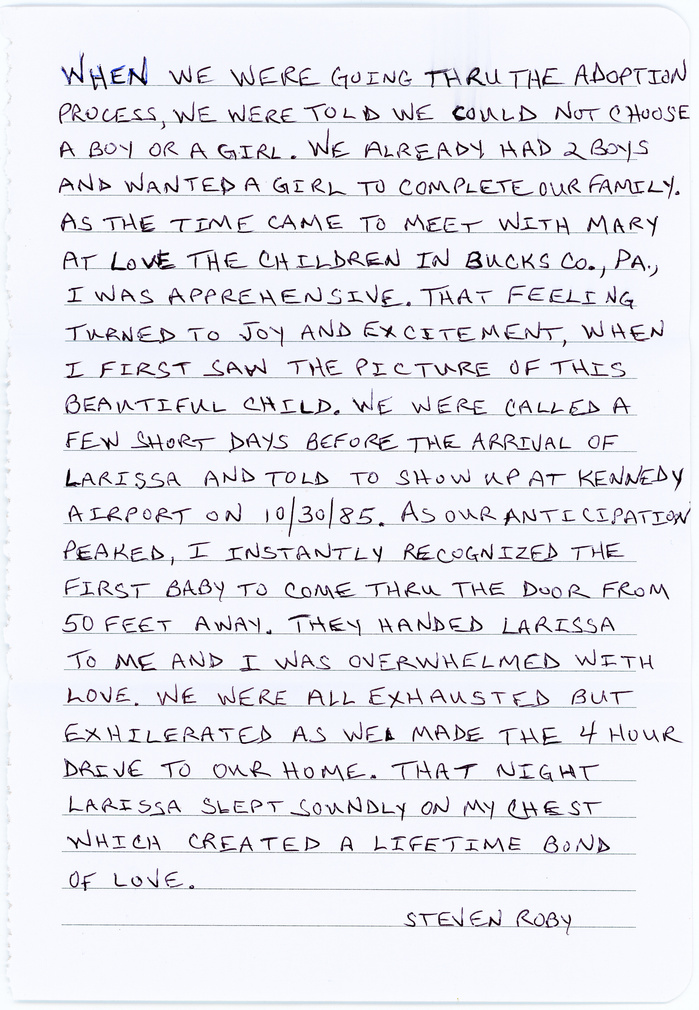 WHEN WE WERE GOING THRU THE ADOPTION
PROCESS, WE WERE TOLD WE COULD NOT CHOOSE
A BOY OR A GIRL. WE ALREADY HAD 2 BOYS
AND WANTED A GIRL TO COMPLETE OUR FAMILY.
AS THE TIME CAME TO MEET WITH MARY
AT LOVE THE CHILDREN IN BUCKS CO., PA.,
I WAS APPREHENSIVE. THAT FEELING
TURNED TO JOY AND EXCITEMENT, WHEN
I FIRST SAW THE PICTURE OF THIS
BEAUTIFUL CHILD. WE WERE CALLED A
FEW SHORT DAYS BEFORE THE ARRIVAL OF
LARISSA AND TOLD TO SHOW UP AT KENNEDY
AIRPORT ON 10/30/85. AS OUR ANTICIPATION
PEAKED, I INSTANTLY RECOGNIZED THE
FIRST BABY TO COME THRU THE DOOR FROM
50 FEET AWAY. THEY HANDED LARISSA
TO ME AND I WAS OVERWHELMED WITH
LOVE. WE WERE ALL EXHAUSTED BUT
EXHILERATED AS WE MADE THE 4 HOUR
DRIVE TO OUR HOME. THAT NIGHT
LARISSA SLEPT SOUNDLY ON MY CHEST
WHICH CREATED A LIFETIME BOND
OF LOVE.
STEVEN ROBY